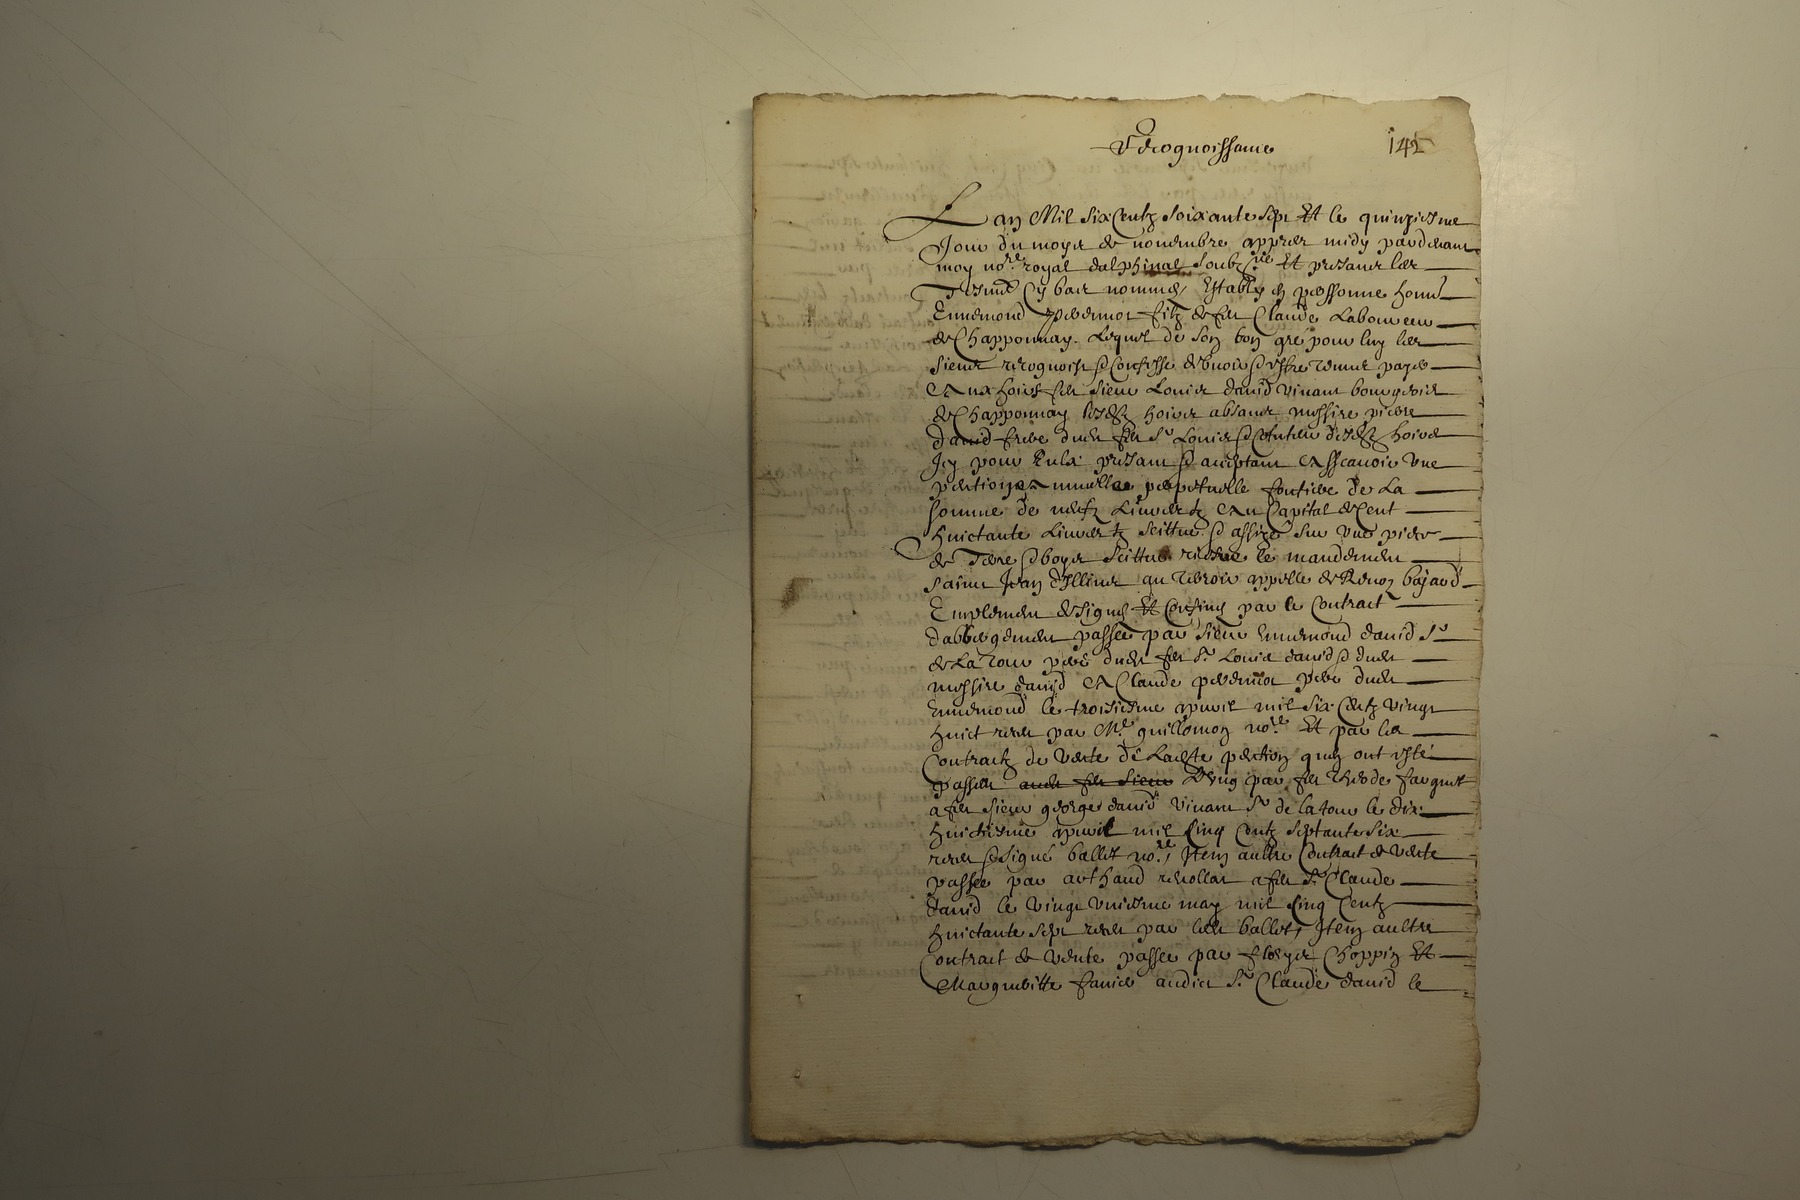 Recognoissance 142
L an Mil six Centz soixante sept Et le quinziesme
Jour du moys de novembre appres midy pardevant
moy no.re royal dalphinal soubz.né Et presant les
Tesmé Cy bas nommés, Estably en personne hon.é
Ennemond pevernot filz de feu Claude Laboureur
de Chapponnay. Lequel de son bon gré pour luy les
siens recognoist et confesse debvoir et estre tenu payer
Aux hoirs feu sieur Louis david vivant bourgeois
de Chapponnay lesdz hoirs absans messire pierre
david frere dudt feu s.r Louis et tuteur desdz hoirs
Icy pour Eulx presant et aceptant Assçavoir une
pention Annuelle perpetuelle fontiere de La
somme de neufz Livres tz Au Capital de Cent
huictante Livres tz scittue et assize sur une piece
de Terre et boys scittue riesre le mandement
saint Jean d'Illins au terroir appelle de bajard
Emplement designé Et Confiné par le Contract
dabbergement passée par sieur Ennemond david s.r
de La Tour pere dudt feu s.r Louis david et dudt
messire david A Claude pevernot pere dudt
Ennemond le troisiesme apvril mil six Centz vingt
huict receu par M.e guillomon no.re Et par les
Contractz de vente de Ladte pention quy ont esté
passés audt feu sieur L'ung par feu farguet
a feu sieur george david vivant s.r de la tour le dix
huictiesme apvril mil Cinq Centz septante six
receu et signé ballet no.re, Item aultre Contract de vente
passée par arthaud revollat a feu s.r Claude
david le vingt uniesme may mil Cinq Centz
huictante sept receu par ledt ballet, Item aultre
Contract de vente passée par Choppin Et
Margueritte audict s.r Claude david le